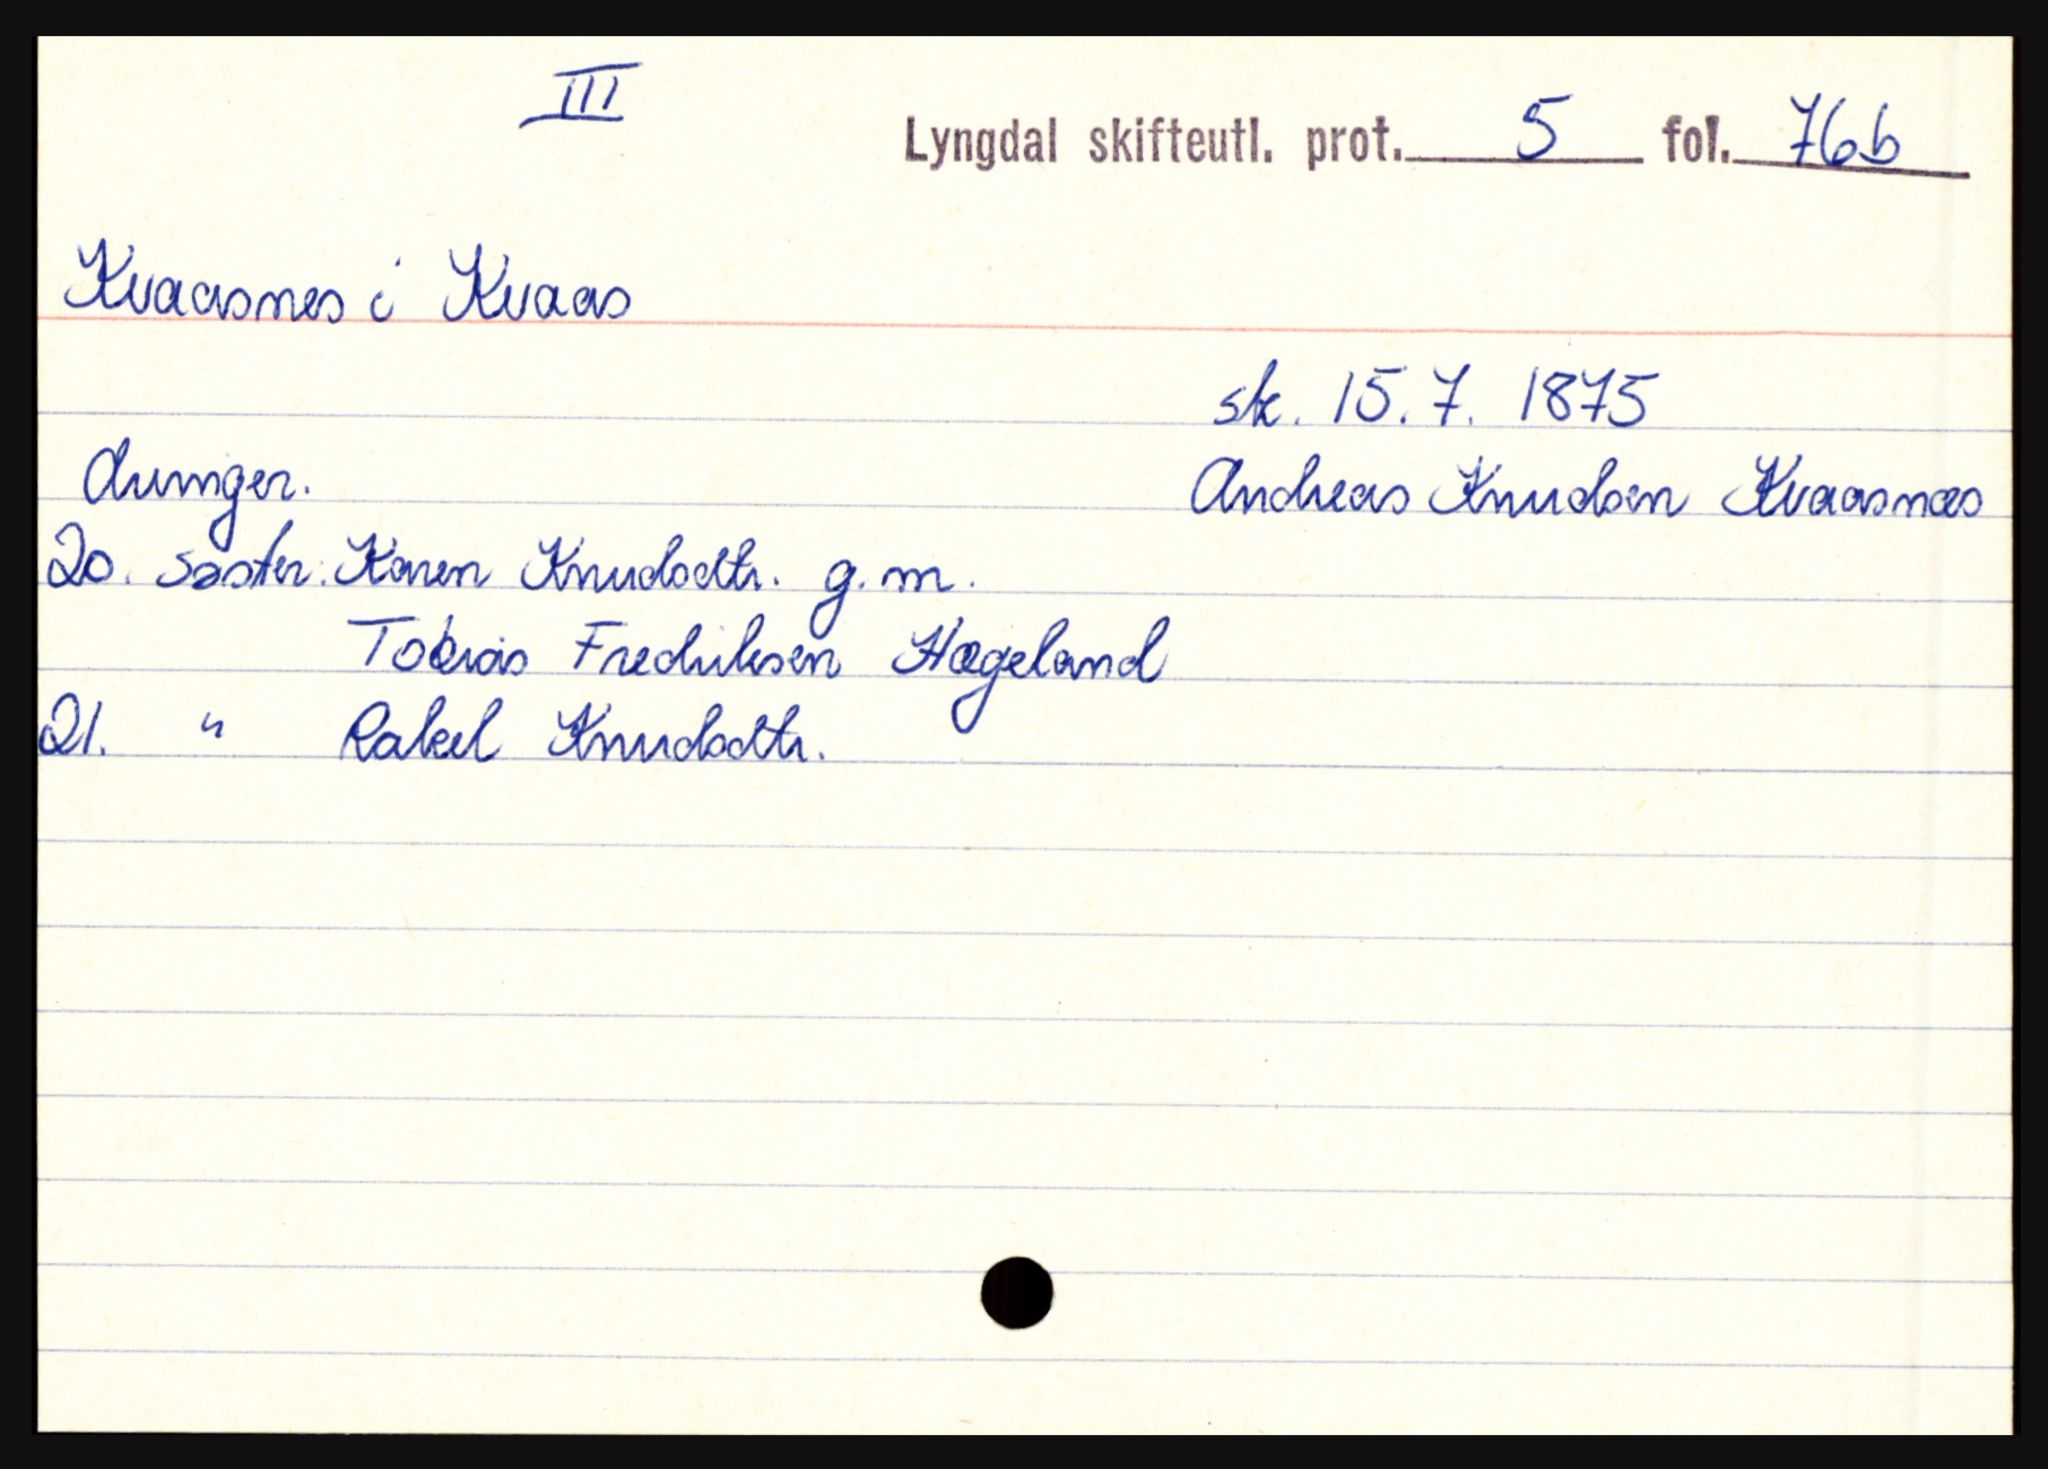 III
Lyngdal skifteutl. prot. 5 fol. 76b
Kvaasnes i Kvaas
sk. 15.7. 1875
Arvinger. Andreas Knudsen Kvaasnæs
20. søster: Karen Knudsdtr. g.m.
Tobias Fredriksen Hægeland
21. " Rakel Knudsdtr.